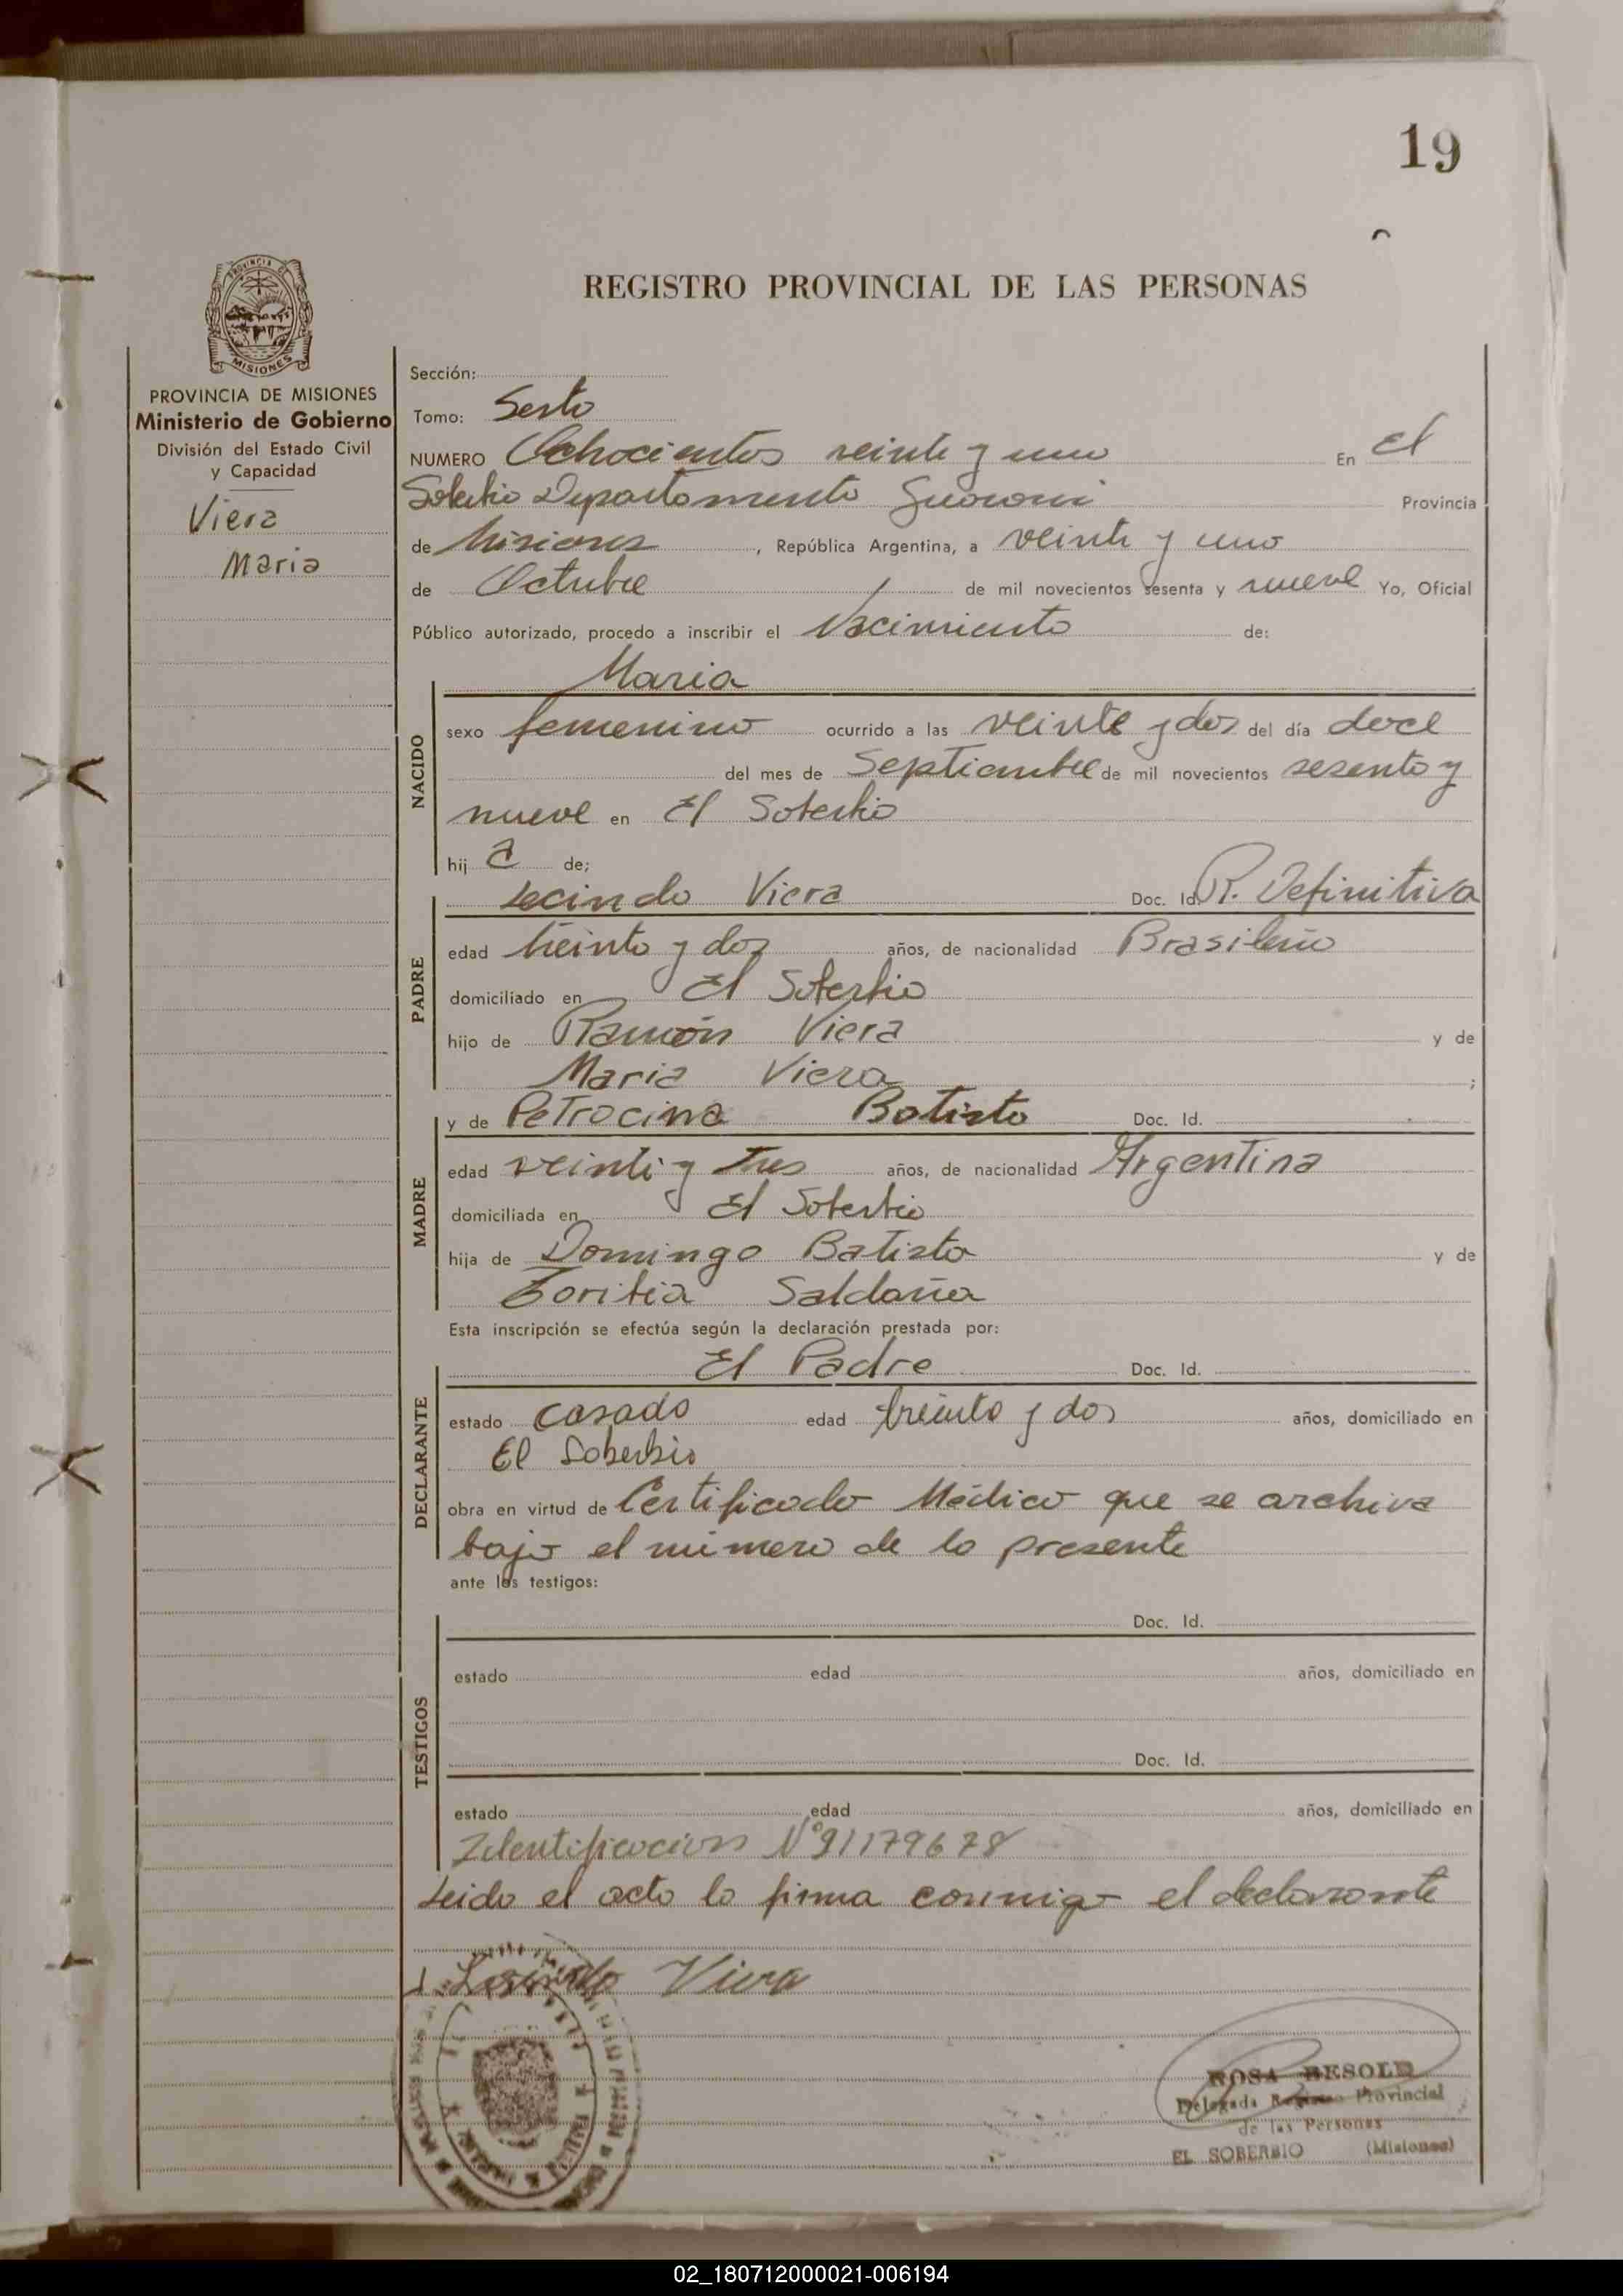 19
REGISTRO PROVINCIAL DE LAS PERSONAS
PROVINCIA DE MISIONES
MISIONES
PROVINCIA DE MISIONES
Ministerio de Gobierno
División del Estado Civil
y Capacidad
Viera
Maria
Sección:
Tomo: Sesto
NUMERO Ochocientos veinte y uno En El
Soberbio Departamento Guarani Provincia
de Misiones, República Argentina, a veinte y uno
de Octubre de mil novecientos sesenta y nueve Yo, Oficial
Público autorizado, procedo a inscribir el Nacimiento de:
Maria
NACIDO
sexo femenino ocurrido a las veinte y dos del día doce
del mes de Septiembre de mil novecientos sesenta y
nueve en El Soberbio
hij a de;
Lecindo Viera Doc. Id. R. Definitiva
PADRE
edad treinta y dos años, de nacionalidad Brasileño
domiciliado en El Soberbio
hijo de Ramón Viera y de
Maria Viera ;
y de Petrocina Batista Doc. Id.
MADRE
edad veinti y tres años, de nacionalidad Argentina
domiciliada en El Soberbio
hija de Domingo Batista y de
Toribia Saldaña
Esta inscripción se efectúa según la declaración prestada por:
El Padre Doc. Id.
DECLARANTE
estado casado edad treinta y dos años, domiciliado en
El Soberbio
obra en virtud de Certificado Médico que se archiva
bajo el número de la presente
ante los testigos:
Doc. Id.
TESTIGOS
estado edad años, domiciliado en
Doc. Id.
estado edad años, domiciliado en
Identificacion Nº 91179678
Leido el acta la firma conmigo el declarante
Viera
ROSA BESOLD
Delegada Registro Provincial
de las Personas
EL SOBERBIO (Misiones)
02_180712000021-006194